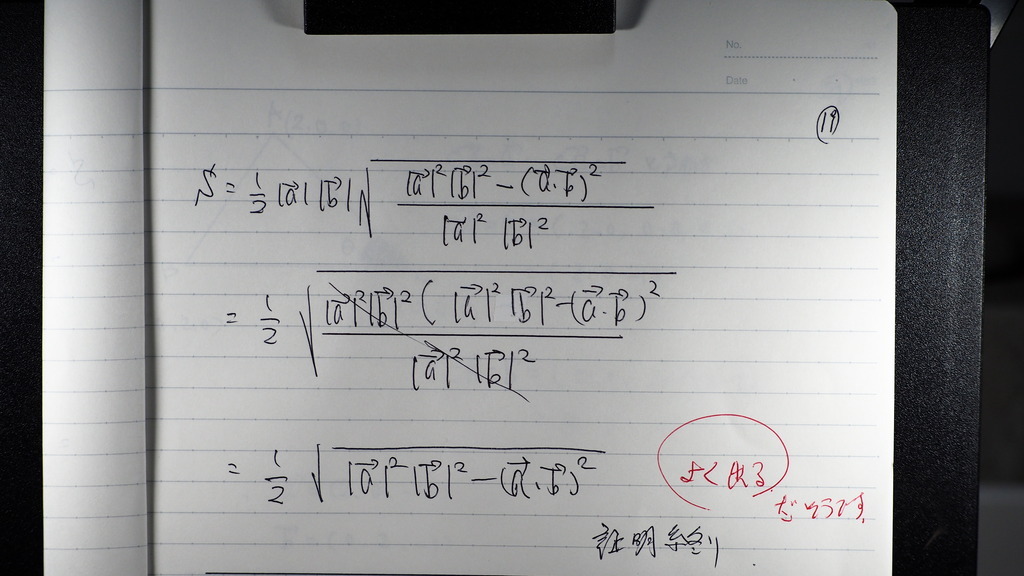 No.
Date
(19)
S = 1/2 |a⃗| |b⃗| √((|a⃗|² |b⃗|² − (a⃗·b⃗)²) / (|a⃗|² |b⃗|²))
= 1/2 √((|a⃗|² |b⃗|² (|a⃗|² |b⃗|² − (a⃗·b⃗)²) / (|a⃗|² |b⃗|²))
= 1/2 √(|a⃗|² |b⃗|² − (a⃗·b⃗)²)
よく出る
だそうです
証明終り